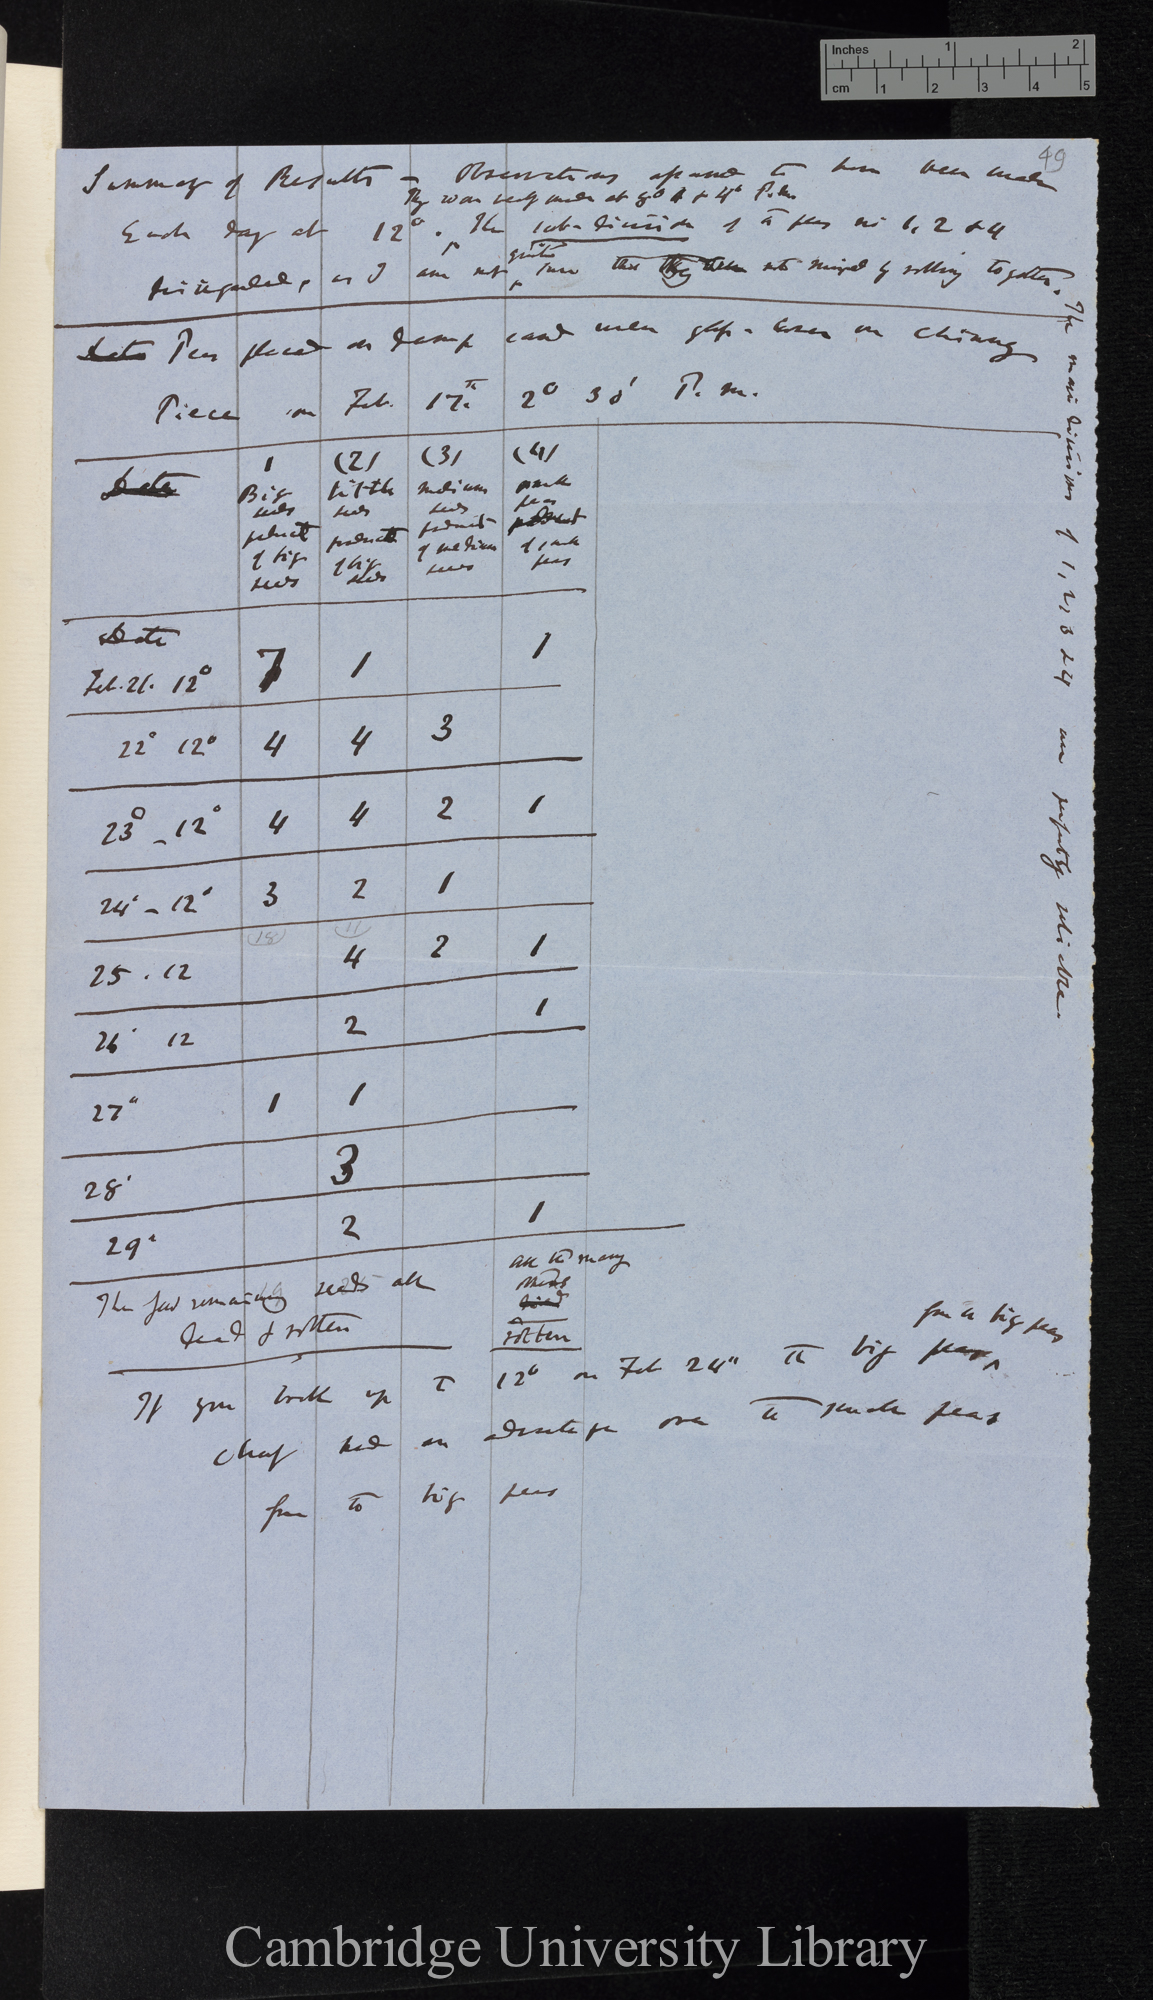 Inches 1 2
cm 1 2 3 4 5
49
Summary of Results — Observations assumed to have been made
They were really made at 8° & 4° P.m.
Each day at 12°. The sub-division of the peas in 1, 2 & 4
disregarded, as I am not quite sure that they were not mixed by rolling together. The main divisions of 1, 2, 3 & 4 are perfectly reliable.
Date Peas placed on damp sand under glass-cover on chimney
Piece on Feb. 17th 2° 30' P.m.
Date
1 (2) (3) (4)
Big little medium small
seeds seeds seeds peas
product product product product
of big of big of medium of small
seeds seeds seeds peas
Date
Feb. 21. 12° 7 1 1
22° 12° 4 4 3
23° – 12° 4 4 2 1
24' – 12° 3 2 1
(18) (11)
25 . 12 4 2 1
26' 12 2 1
27" 1 1
28' 3
29" 2 1
The few remaining seeds all
dead & rotten
all the many
others
dead
rotten
If you look up to 12° on Feb 24" the big peas from the big peas
clearly had an advantage over the small peas
from the big peas
Cambridge University Library